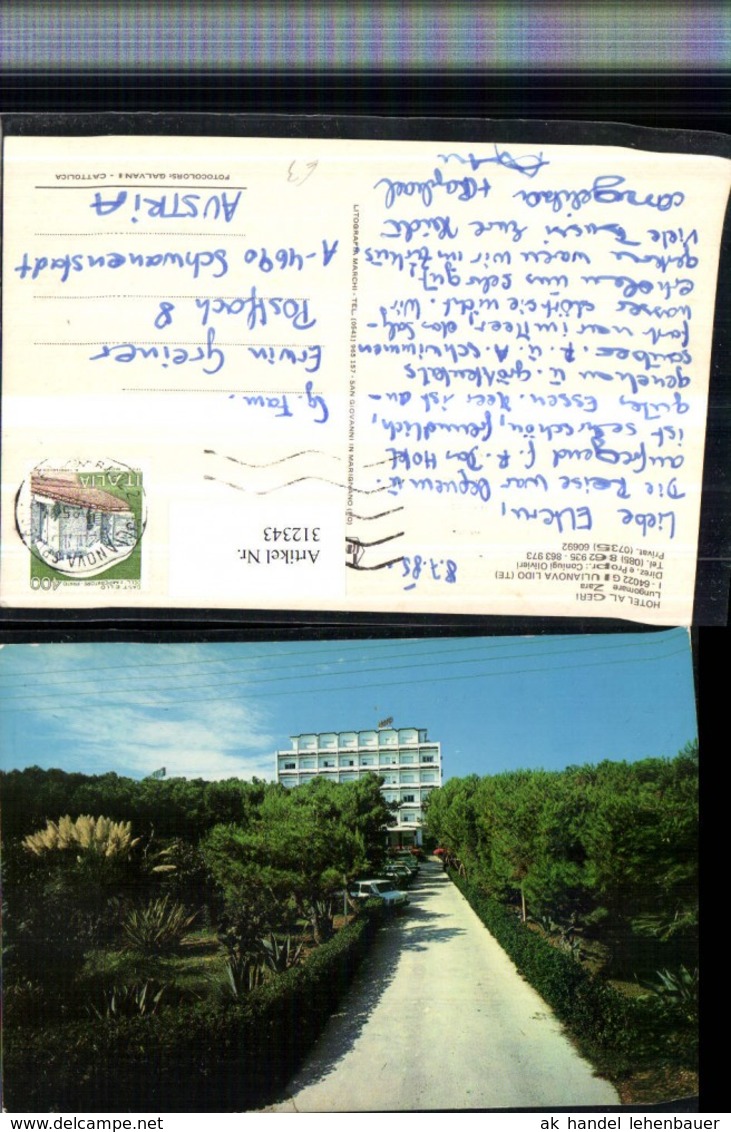 HOTEL AL GERI
Lungomare Zara
I - 64022 GIULIANOVA LIDO (TE)
Direz. e Propr.: Coniugi Olivieri
Tel. (085) 862 935 - 863 973
Privat. (0735) 60692
8.7.85
Liebe Eltern,
Die Reise war bequem u.
aufregend f. R. Das Hotel
ist sehr schön, freundlich,
gutes Essen. Meer ist an-
genehm u. größtenteils
sauber. R. u. A. schwimmen
fort war im Meer, das Salz-
wasser stört sie nicht. Wir
erholen uns sehr gut,
gestern waren wir im Zirkus
Viele Bussi Eure Heidi
Angelika + Raphael
LITOGRAFIA MARCHI - TEL. (0541) 955 157 - SAN GIOVANNI IN MARIGNANO (FO)
400
ITALIA
Artikel Nr.
312343
Fg. Fam.
Erwin Greiner
Postfach 8
A-4690 Schwanenstadt
AUSTRIA
FOTOCOLORS: GALVANI - CATTOLICA
ak handel lehenbauer